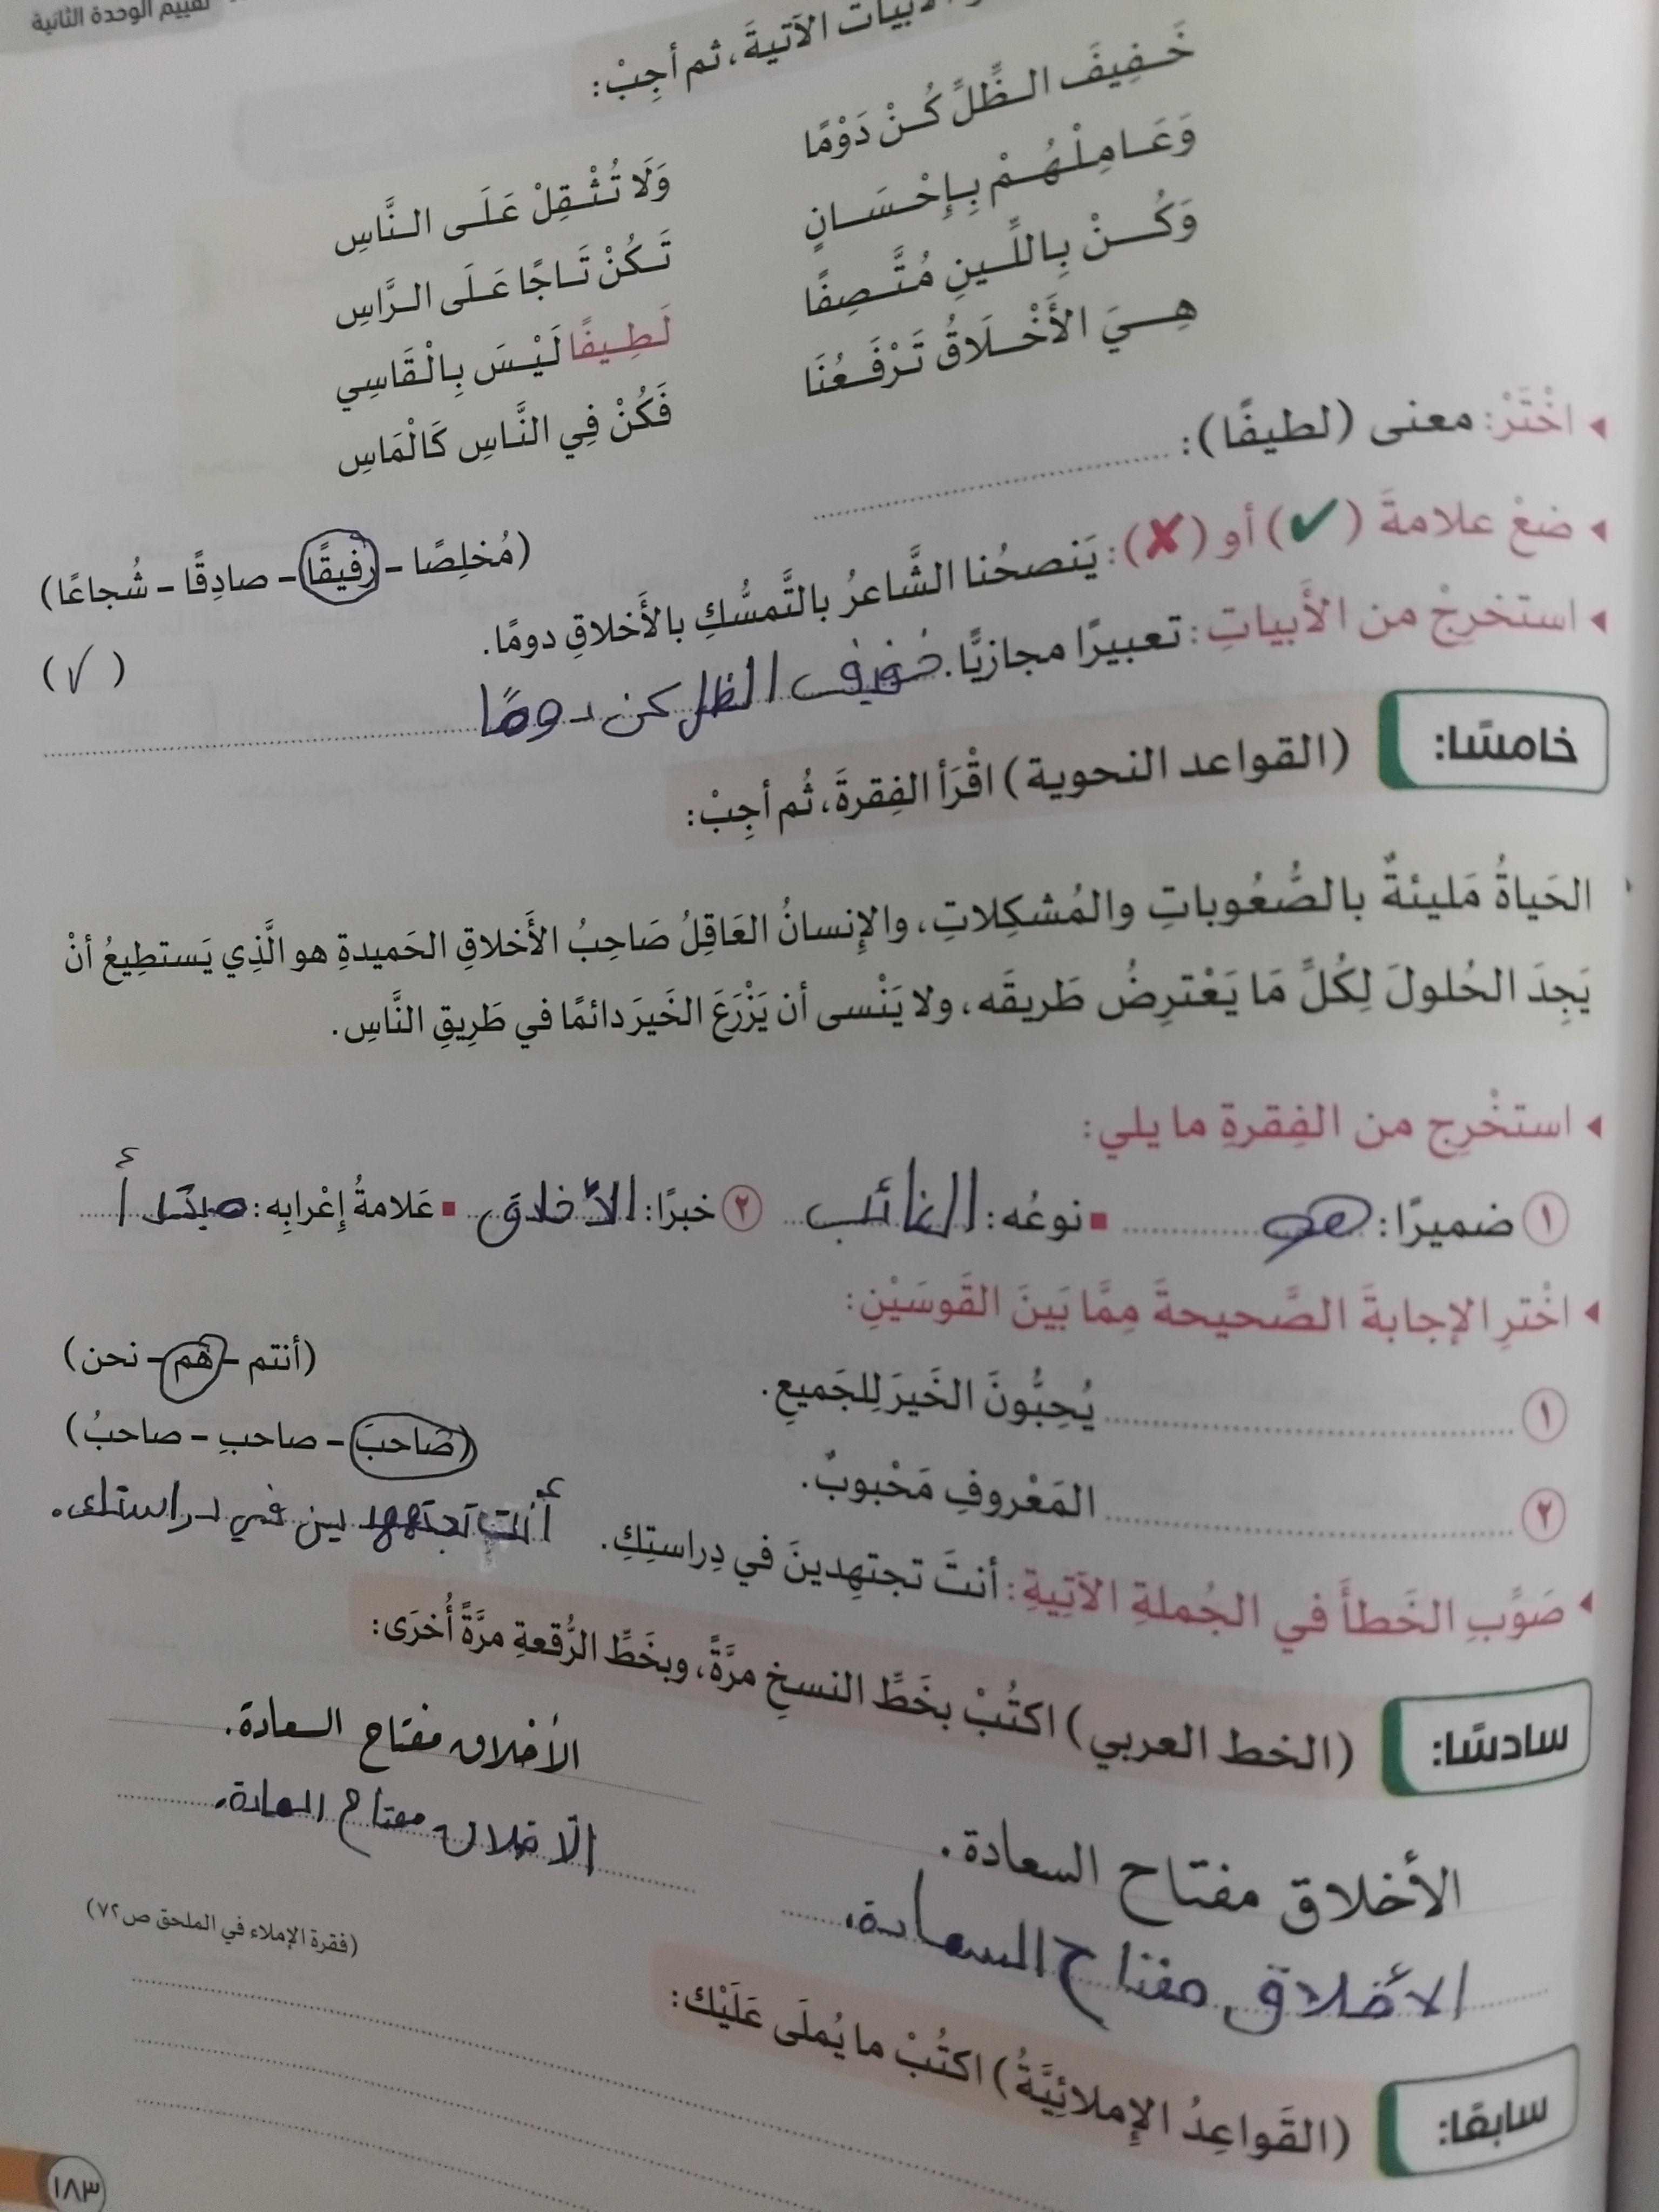 تقييم الوحدة الثانية
الأبيات الآتيةَ، ثم أجِبْ:
خَفِيفَ الظِّلِّ كُنْ دَوْمًا
وَلَا تُثْقِلْ عَلَى النَّاسِ
وَعَامِلْهُمْ بِإِحْسَانٍ
تَكُنْ تَاجًا عَلَى الرَّاسِ
وَكُنْ بِاللِّينِ مُتَّصِفًا
لَطِيفًا لَيْسَ بِالْقَاسِي
هِيَ الأَخْلَاقُ تَرْفَعُنَا
فَكُنْ فِي النَّاسِ كَالْمَاسِ
اخْتَرْ: معنى (لطيفًا):
(مُخلِصًا – رفيقًا – صادِقًا – شُجاعًا)
ضعْ علامةَ (✔) أو (✘): يَنصحُنا الشَّاعرُ بالتَّمسُّكِ بالأَخلاقِ دومًا.
(✓)
استخرِجْ من الأَبياتِ: تعبيرًا مجازيًّا. خفيف الظل كن دومًا
خامسًا:
(القواعد النحوية) اقْرَأ الفِقرةَ، ثُم أجِبْ:
الحَياةُ مَليئةٌ بالصُّعُوباتِ والمُشكِلاتِ، والإنسانُ العَاقِلُ صَاحِبُ الأَخلاقِ الحَميدةِ هو الَّذِي يَستطِيعُ أنْ
يَجِدَ الحُلولَ لِكُلِّ مَا يَعْترِضُ طَريقَه، ولا يَنْسى أن يَزْرَعَ الخَيرَ دائمًا في طَرِيقِ النَّاسِ.
استخْرِج من الفِقرةِ ما يلي:
١ ضميرًا: هو ▪ نوعُه: الغائب ٢ خبرًا: الأخلاق ▪ عَلامةُ إعْرابِه: مبتدأ
اخْترِ الإجابةَ الصَّحيحةَ مِمَّا بَينَ القَوسَيْنِ:
١ يُحِبُّونَ الخَيرَ لِلجَميعِ.
(أنتم – هم – نحن)
٢ المَعْروفِ مَحْبوبٌ.
(صَاحبَ – صاحبِ – صاحبُ)
صَوِّبِ الخَطأَ في الجُملةِ الآتِيةِ: أنتَ تجتهِدينَ في دِراستِكِ. أنت تجتهدين في دراستك.
سادسًا:
(الخط العربي) اكتُبْ بخَطِّ النسخِ مرَّةً، وبخَطِّ الرُّقعةِ مرَّةً أُخرَى:
الأخلاق مفتاح السعادة.
الأخلاق مفتاح السعادة.
الأخلاق مفتاح السعادة.
الأخلاق مفتاح السعادة.
سابعًا:
(القَواعِدُ الإملائِيَّةُ) اكتُبْ ما يُملَى عَلَيْك:
(فقرة الإملاء في الملحق ص٧٢)
١٨٣